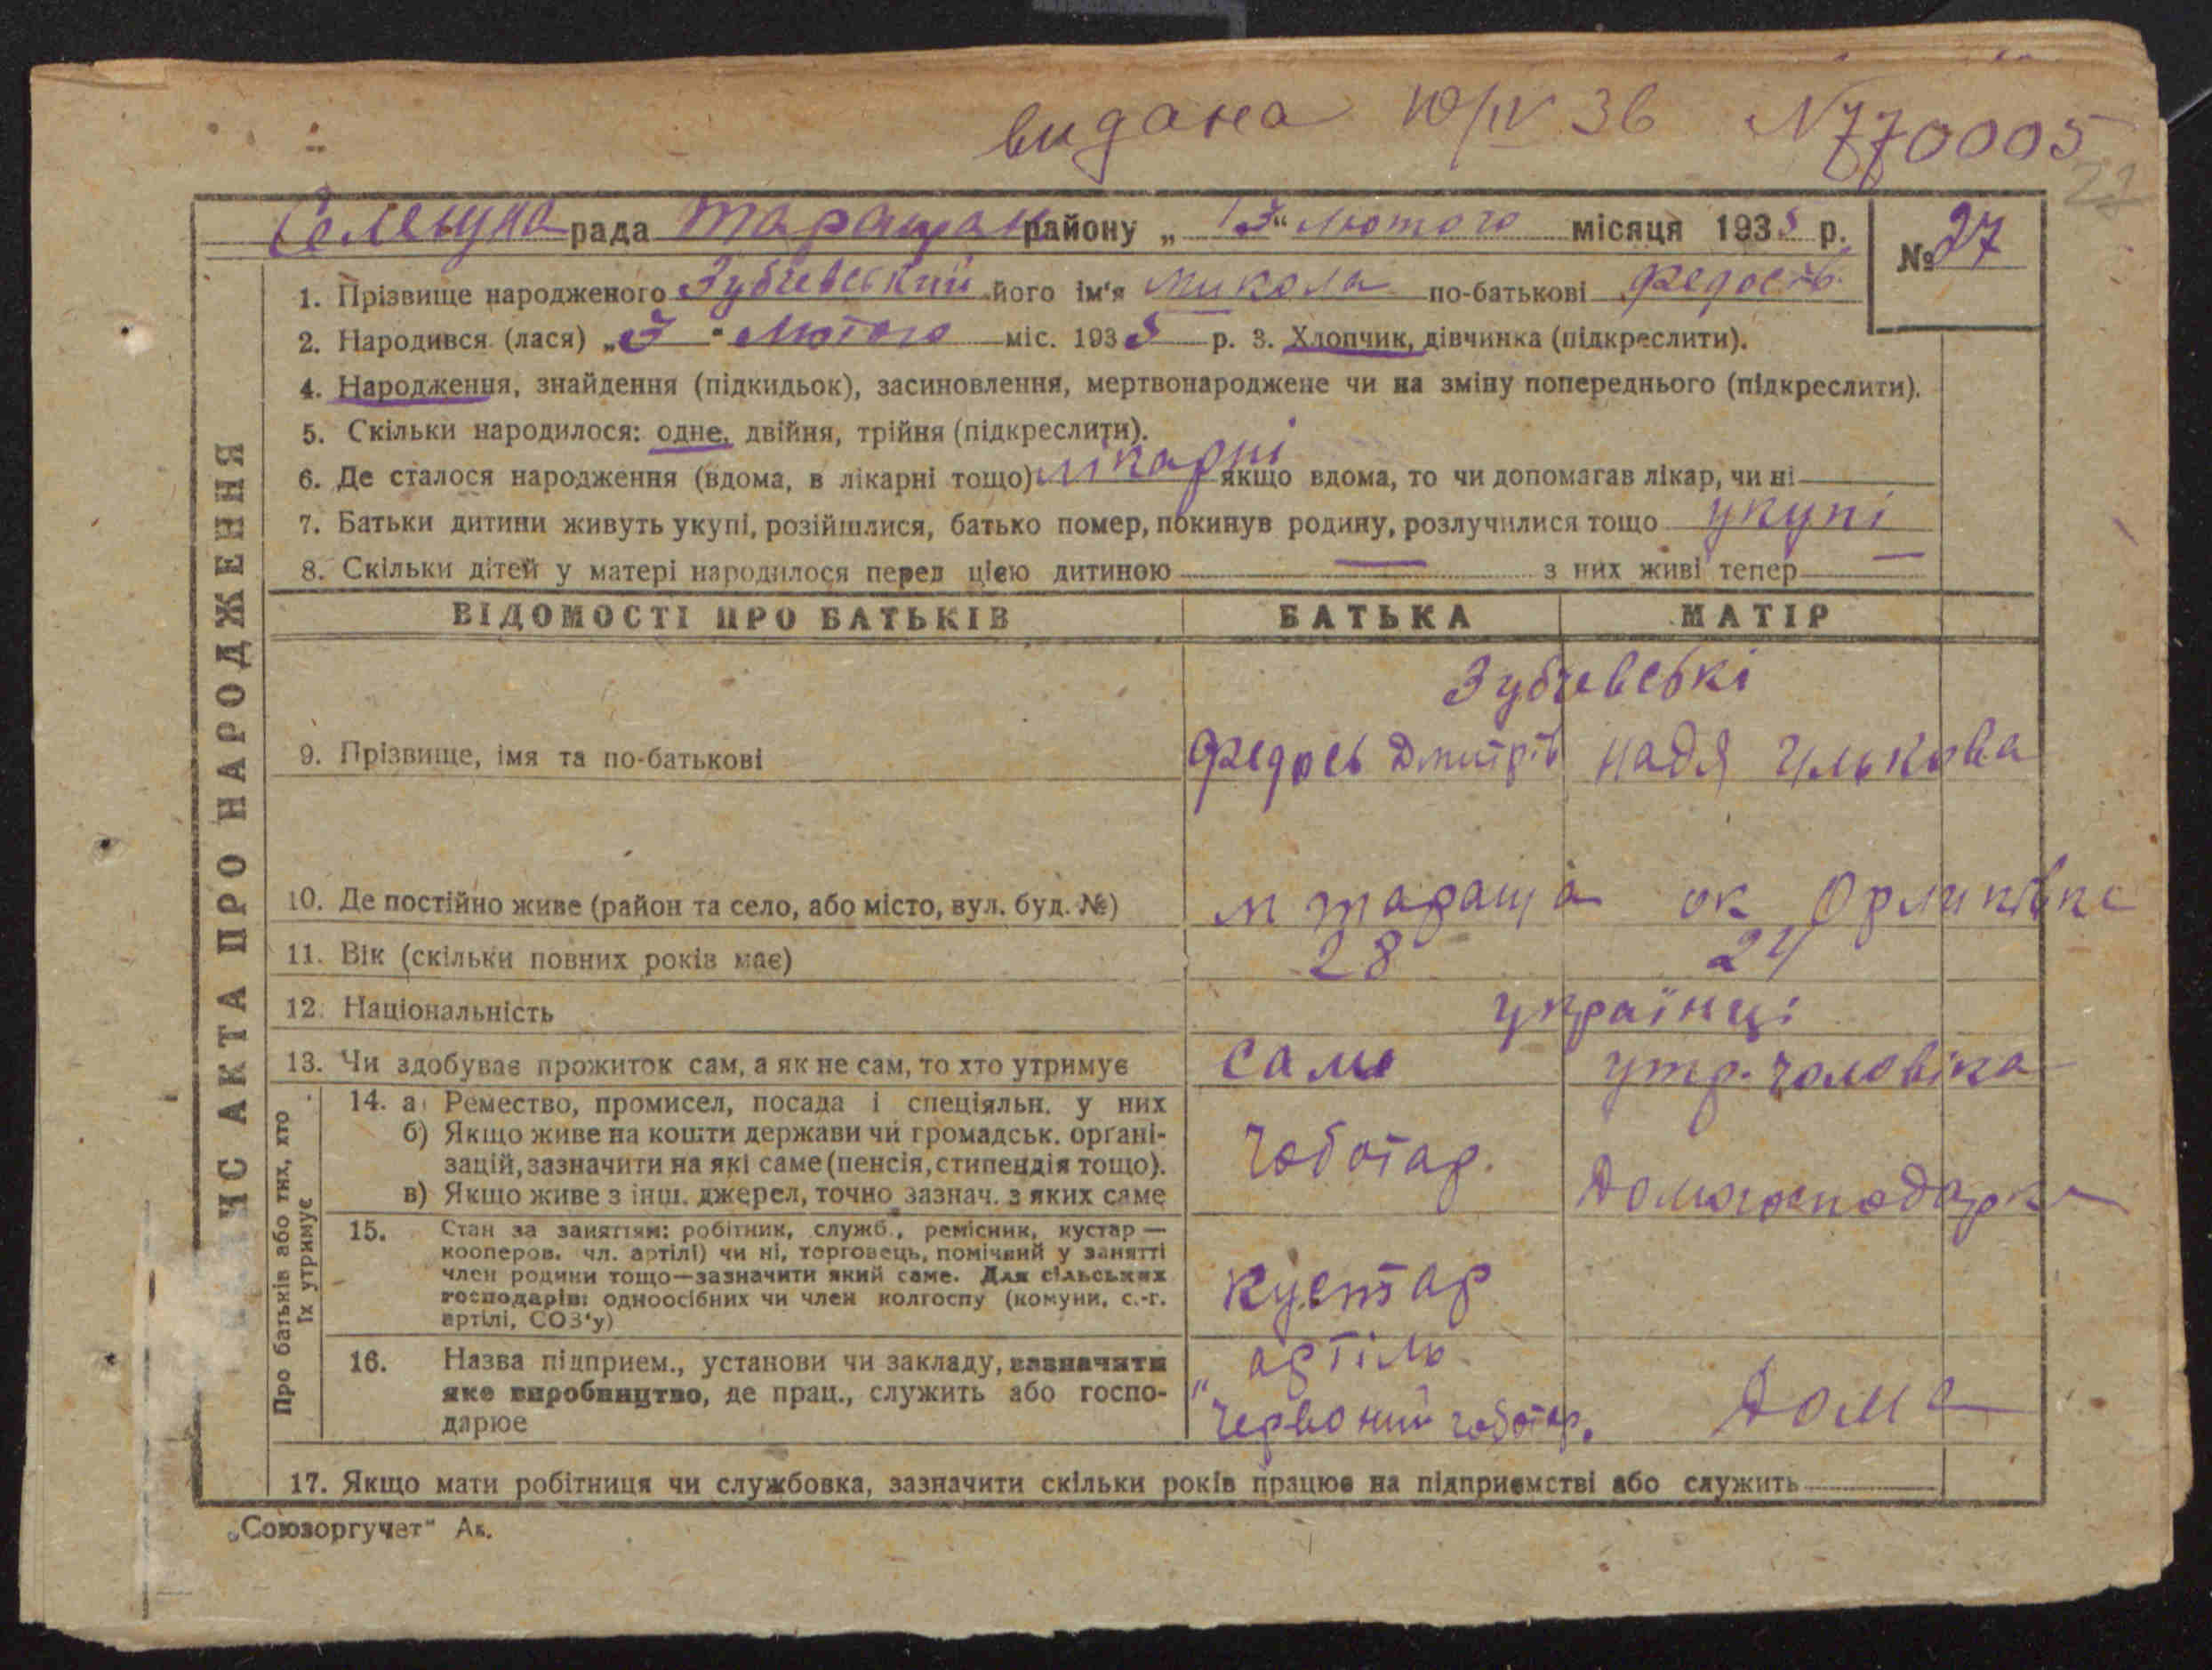 видана 10/IV 36 N 770005
21
Селищна рада Таращан району „13“ Лютого місяця 1935 р. № 27
1. Прізвище народженого Зубчевський його ім'я Микола по-батькові Федосів.
2. Народився (лася) „3“ Лютого міс. 1935 р. 3. Хлопчик, дівчинка (підкреслити).
4. Народження, знайдення (підкидьок), засиновлення, мертвонароджене чи на зміну попереднього (підкреслити).
5. Скільки народилося: одне, двійня, трійня (підкреслити).
6. Де сталося народження (вдома, в лікарні тощо) лікарні якщо вдома, то чи допомагав лікар, чи ні
7. Батьки дитини живуть укупі, розійшлися, батько помер, покинув родину, розлучилися тощо укупі
8. Скільки дітей у матері народилося перед цією дитиною — з них живі тепер —
ВІДОМОСТІ ПРО БАТЬКІВ БАТЬКА МАТІР
Зубчевські
9. Прізвище, імя та по-батькові Федось Дмитрів Надя Ількова
10. Де постійно живе (район та село, або місто, вул. буд. №) м Тараща ок Орликівка
11. Вік (скільки повних років має) 28 24
12. Національність українці
13. Чи здобуває прожиток сам, а як не сам, то хто утримує сам утр. чоловіка
Про батьків або тих, хто їх утримує
14. а) Ремество, промисел, посада і спеціяльн. у них
б) Якщо живе на кошти держави чи громадськ. органі-
зацій, зазначити на які саме (пенсія, стипендія тощо).
в) Якщо живе з інш. джерел, точно зазнач. з яких саме
Чоботар. Домогосподарка
15. Стан за заняттям: робітник, служб., ремісник, кустар —
кооперов. чл. артілі) чи ні, торговець, помічний у занятті
член родини тощо—зазначити який саме. Для сільських
господарів: одноосібних чи член колгоспу (комуни, с.-г.
артілі, СОЗ'у)
Кустар
16. Назва підприєм., установи чи закладу, зазначити
яке виробництво, де прац., служить або госпо-
дарює
артіль
„Червоний чоботар. Дома
17. Якщо мати робітниця чи службовка, зазначити скільки років працює на підприємстві або служить
„Союзоргучет“ Ак.
ЗАПИС АКТА ПРО НАРОДЖЕННЯ